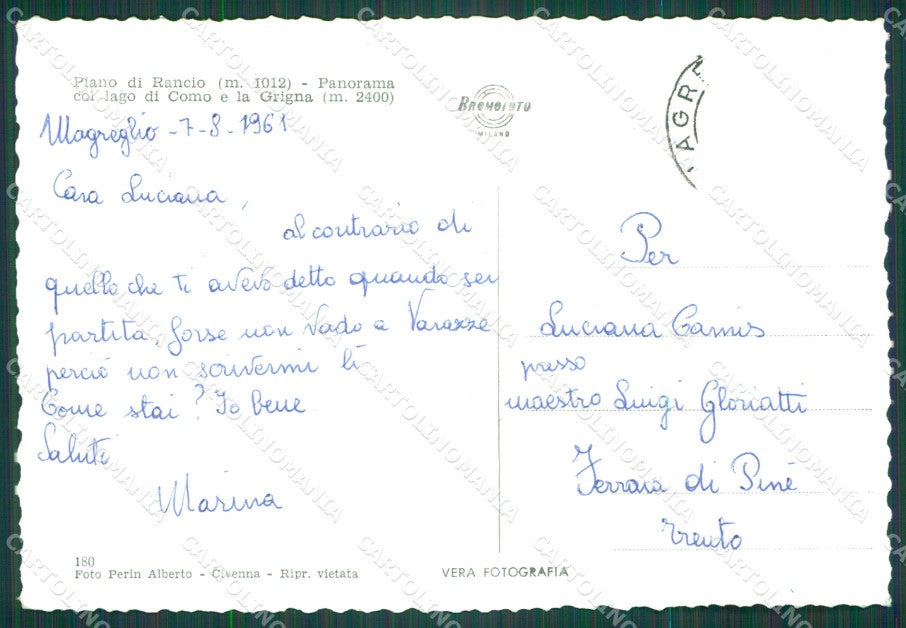 Piano di Rancio (m. 1012) - Panorama
col lago di Como e la Grigna (m. 2400)
BROMOFOTO
MILANO
MAGRE
Magreglio - 7-8-1961
Cara Luciana,
al contrario di
quello che ti avevo detto quando sei
partita, forse non vado a Varazze
perciò non scrivermi lì
Come stai? Io bene
Saluti
Marina
Per
Luciana Camis
presso
maestro Luigi Gloriatti
di Pinè
Trento
180
Foto Perin Alberto - Civenna - Ripr. vietata
VERA FOTOGRAFIA
CARTOLINOMANIA